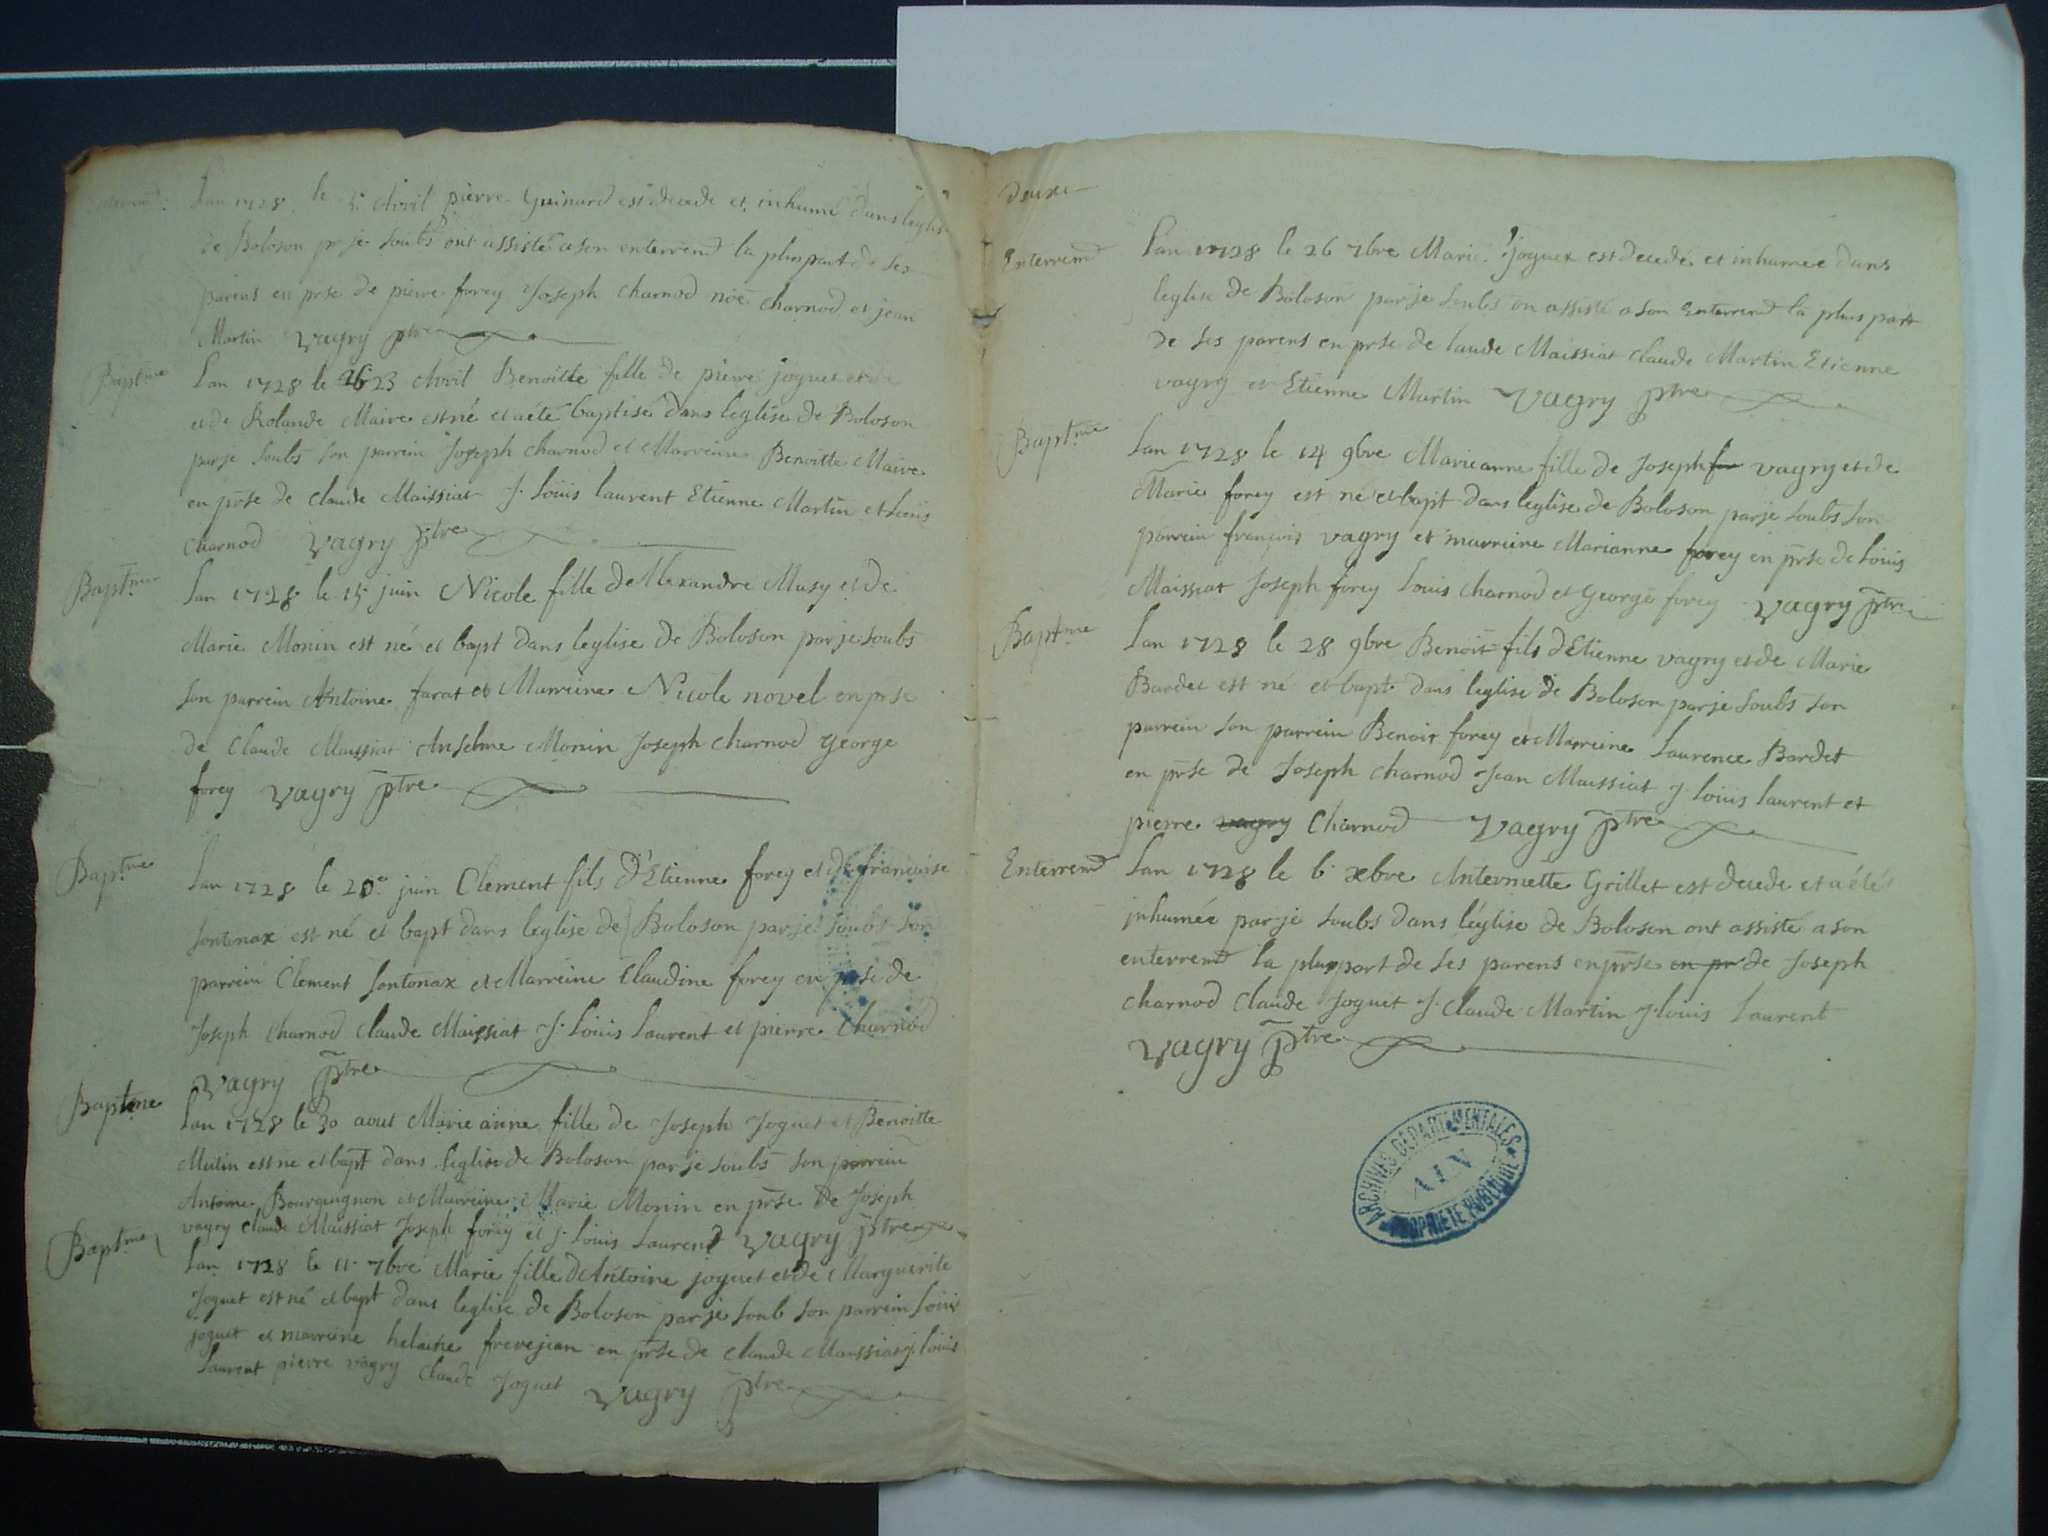 Enterremt
Lan 1728 le 5 Avril pierre Guinard est decede et inhumé dans leglise
de Boloson pr je soubs ont assisté a son enterremt la pluspart de ses
parens en prse de pierre forey Joseph charnod noë charnod et jean
Martin Vagry ptre
Baptme
Lan 1728 le 23 Avril Benoitte fille de pierre joguet et de
et de Rolande Maire est né et a été baptisé dans leglise de Boloson
par je soubs son parrein Joseph charnod et Marreine Benoitte Maire
en prse de claude Maissiat J. Loüis laurent Etienne Martin et Loüis
charnod Vagry ptre
Baptme
Lan 1728 le 15 juin Nicole fille de Alexandre Musy et de
Marie Monin est né et bapt dans leglise de Boloson par je soubs
son parrein Antoine farat et Marreine Nicole novel en prse
de Claude Maissiat Anselme Monin Joseph charnod George
forey Vagry ptre
Baptme
Lan 1728 le 20e juin Clement fils d'Etienne forey et de françoise
sontonax est né et bapt dans leglise de Boloson par je soubs son
parrein Clement sontonax et Marreine Claudine forey en prse de
Joseph Charnod claude Maissiat J. Loüis Laurent et pierre Charnod
Vagry Ptre
Baptme
Lan 1728 le 30 aout Marie anne fille de Joseph Joguet et Benoitte
Mutin est ne et bapt dans leglise de Boloson par je soubs son parrein
Antoine Bourguignon et Marreine Marie Monin en prse de Joseph
vagry claude Maissiat Joseph forey et J. Louis Laurend Vagry ptre
Baptme
Lan 1728 le 11 7bre Marie fille dAntoine joguet et de Marguerite
Joguet est né et bapt dans leglise de Boloson par je soub son parrein Loüis
joguet et marreine helaine frerejean en prse de claude Maissiat J. loüis
Laurent pierre vagry Claude Joguet Vagry Ptre
Deuxe
Enterremd
Lan 1728 le 26 7bre Marie Joguet est decedé et inhumee dans
leglise de Boloson par je soubs on assisté a son Enterremd la plus part
de ses parens en prse de laude Maissiat claude Martin Etienne
vagry et Etienne Martin Vagry ptre
Baptme
Lan 1728 le 14 9bre Marieanne fille de Joseph vagry et de
Marie forey est né et bapt dans leglise de Boloson par je soubs son
parrein françois vagry et marreine Marianne forey en prse de Loüis
Maissiat Joseph forey Louis charnod et George forey Vagry Ptre
Baptme
Lan 1728 le 28 9bre Benoit fils dEtienne vagry et de Marie
Bardet est né et bapt dans leglise de Boloson par je soubs son
parrein son parrein Benoit forey et Marreine Laurence Bardet
en prse de Joseph charnod Jean Maissiat J. loüis laurent et
pierre vagry Charnod Vagry Ptre
Enterremd
Lan 1728 le 6 xbre Antermette Grillet est decede et a été
inhumée par je soubs dans léglise de Boloson ont assisté a son
enterremt la pluspart de ses parens en prse en pr de Joseph
charnod claude Joguet J. Claude Martin J. louis Laurent
Vagry Ptre
ARCHIVES DEPARTEMENTALES
AIN
PROPRIETE PUBLIQUE